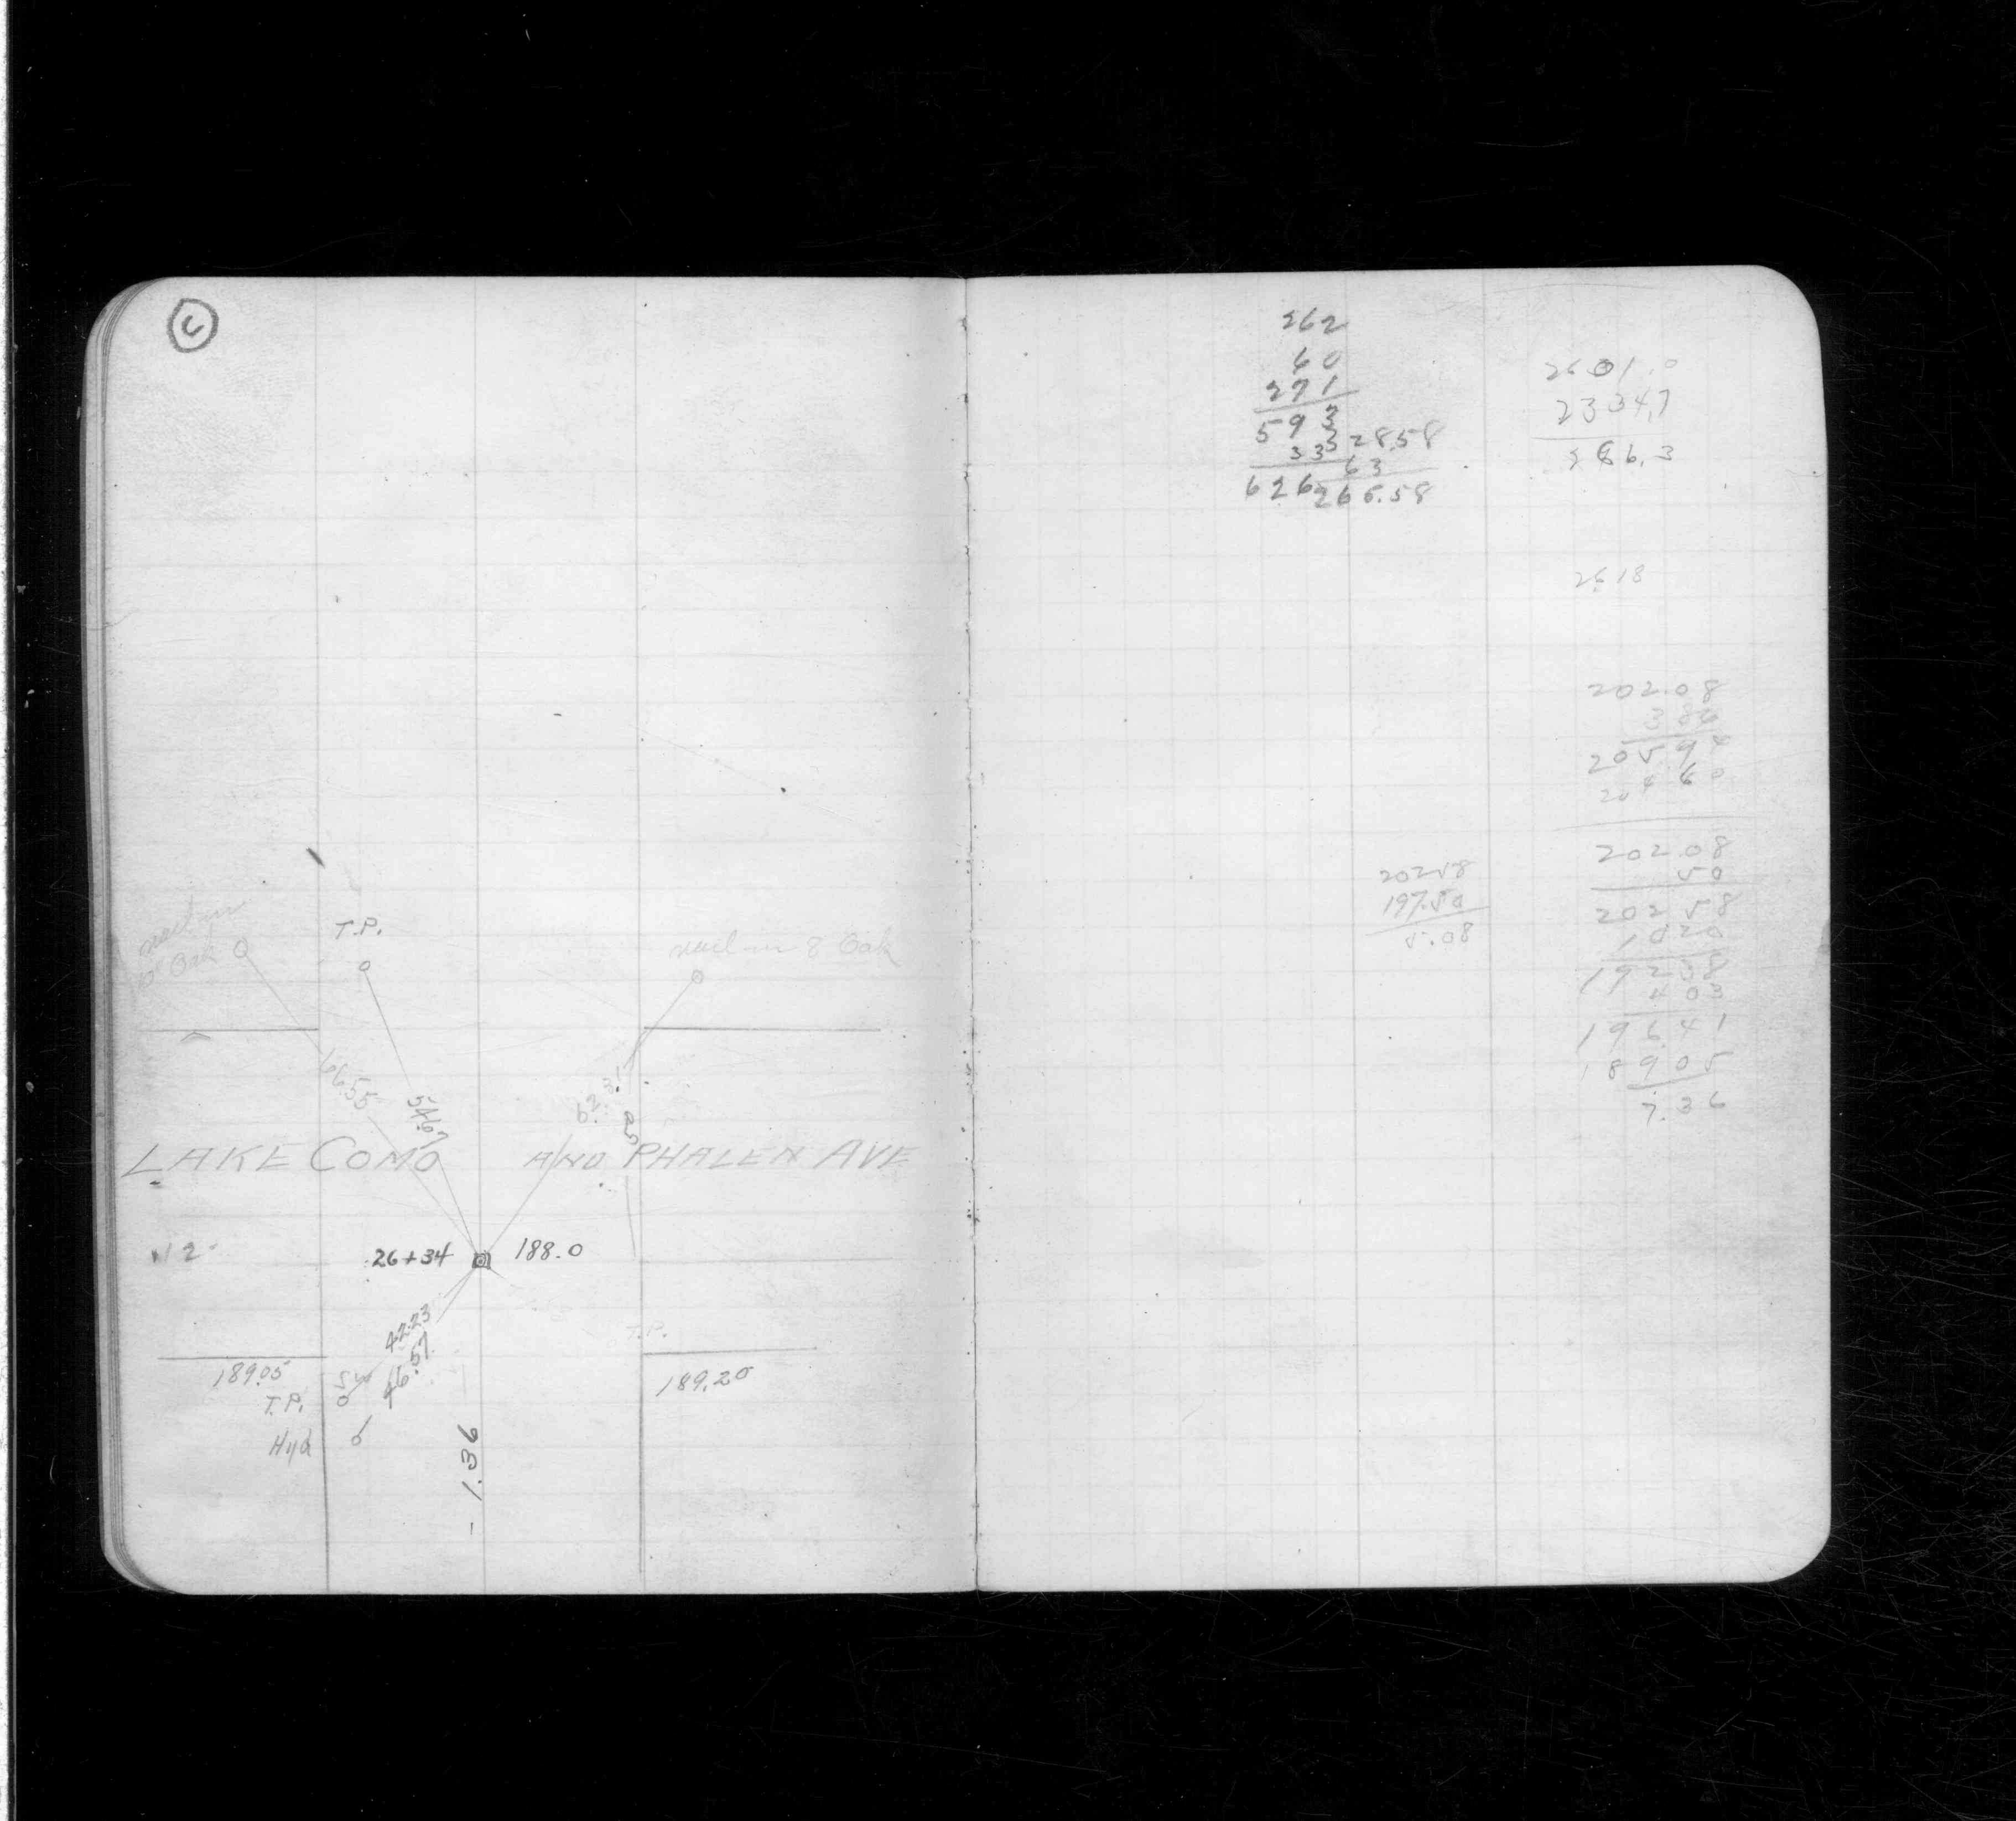 C
nail in
10" Oak
T.P.
nail in 8 Oak
66.55
54.67
62.31
LAKE COMO AND PHALEN AVE
26+34 188.0
42.23
46.57
T.P.
189.05
189.20
T.P.
Hyd
- 1.36
262
60
271
593
33
626
28.58
63
266.58
2601.0
2334.7
2618
202.08
3 86
205 94
202.08
50
202 58
10 20
192 38
4 03
196.41
189 05
7.36
202 58
197.50
5.08